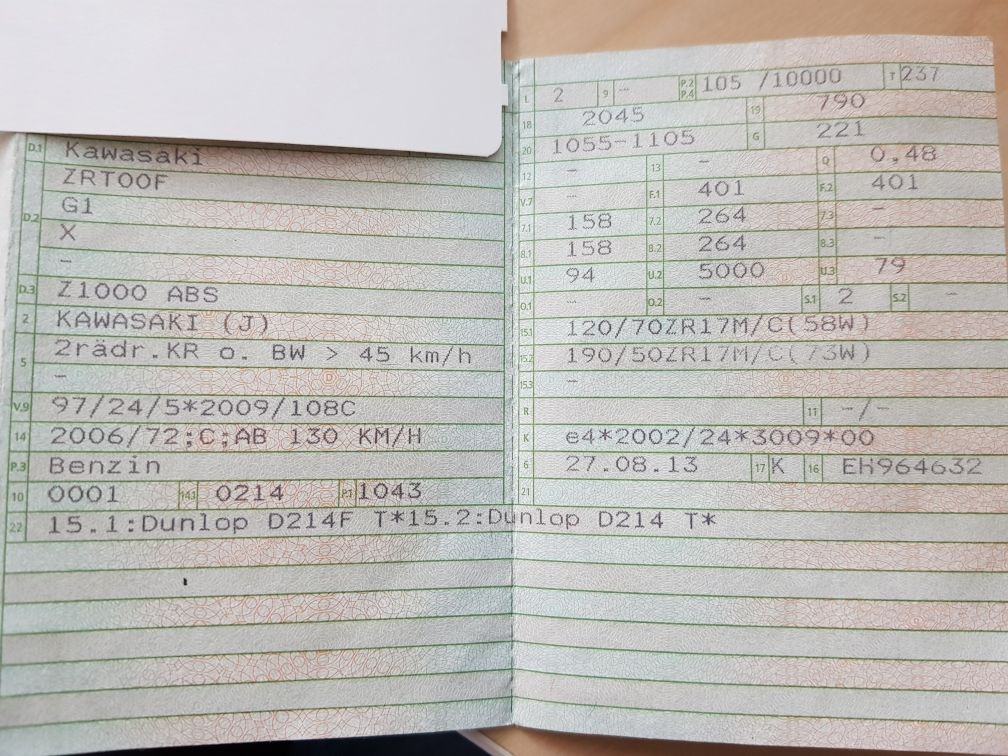 D.1 Kawasaki
ZRT00F
D.2 G1
X
-
D.3 Z1000 ABS
2 KAWASAKI (J)
5 2rädr.KR o. BW > 45 km/h
-
V.9 97/24/5*2009/108C
14 2006/72;C;AB 130 KM/H
P.3 Benzin
10 0001 14.1 0214 P.1 1043
22 15.1:Dunlop D214F T*15.2:Dunlop D214 T*
L 2 9 -- P.2 P.4 105 /10000 T 237
18 2045 19 790
20 1055-1105 G 221
12 - 13 - Q 0,48
V.7 - F.1 401 F.2 401
7.1 158 7.2 264 7.3 -
8.1 158 8.2 264 8.3 -
U.1 94 U.2 5000 U.3 79
O.1 - O.2 - S.1 2 S.2 -
15.1 120/70ZR17M/C(58W)
15.2 190/50ZR17M/C(73W)
15.3 -
R 11 -/-
K e4*2002/24*3009*00
6 27.08.13 17 K 16 EH964632
21